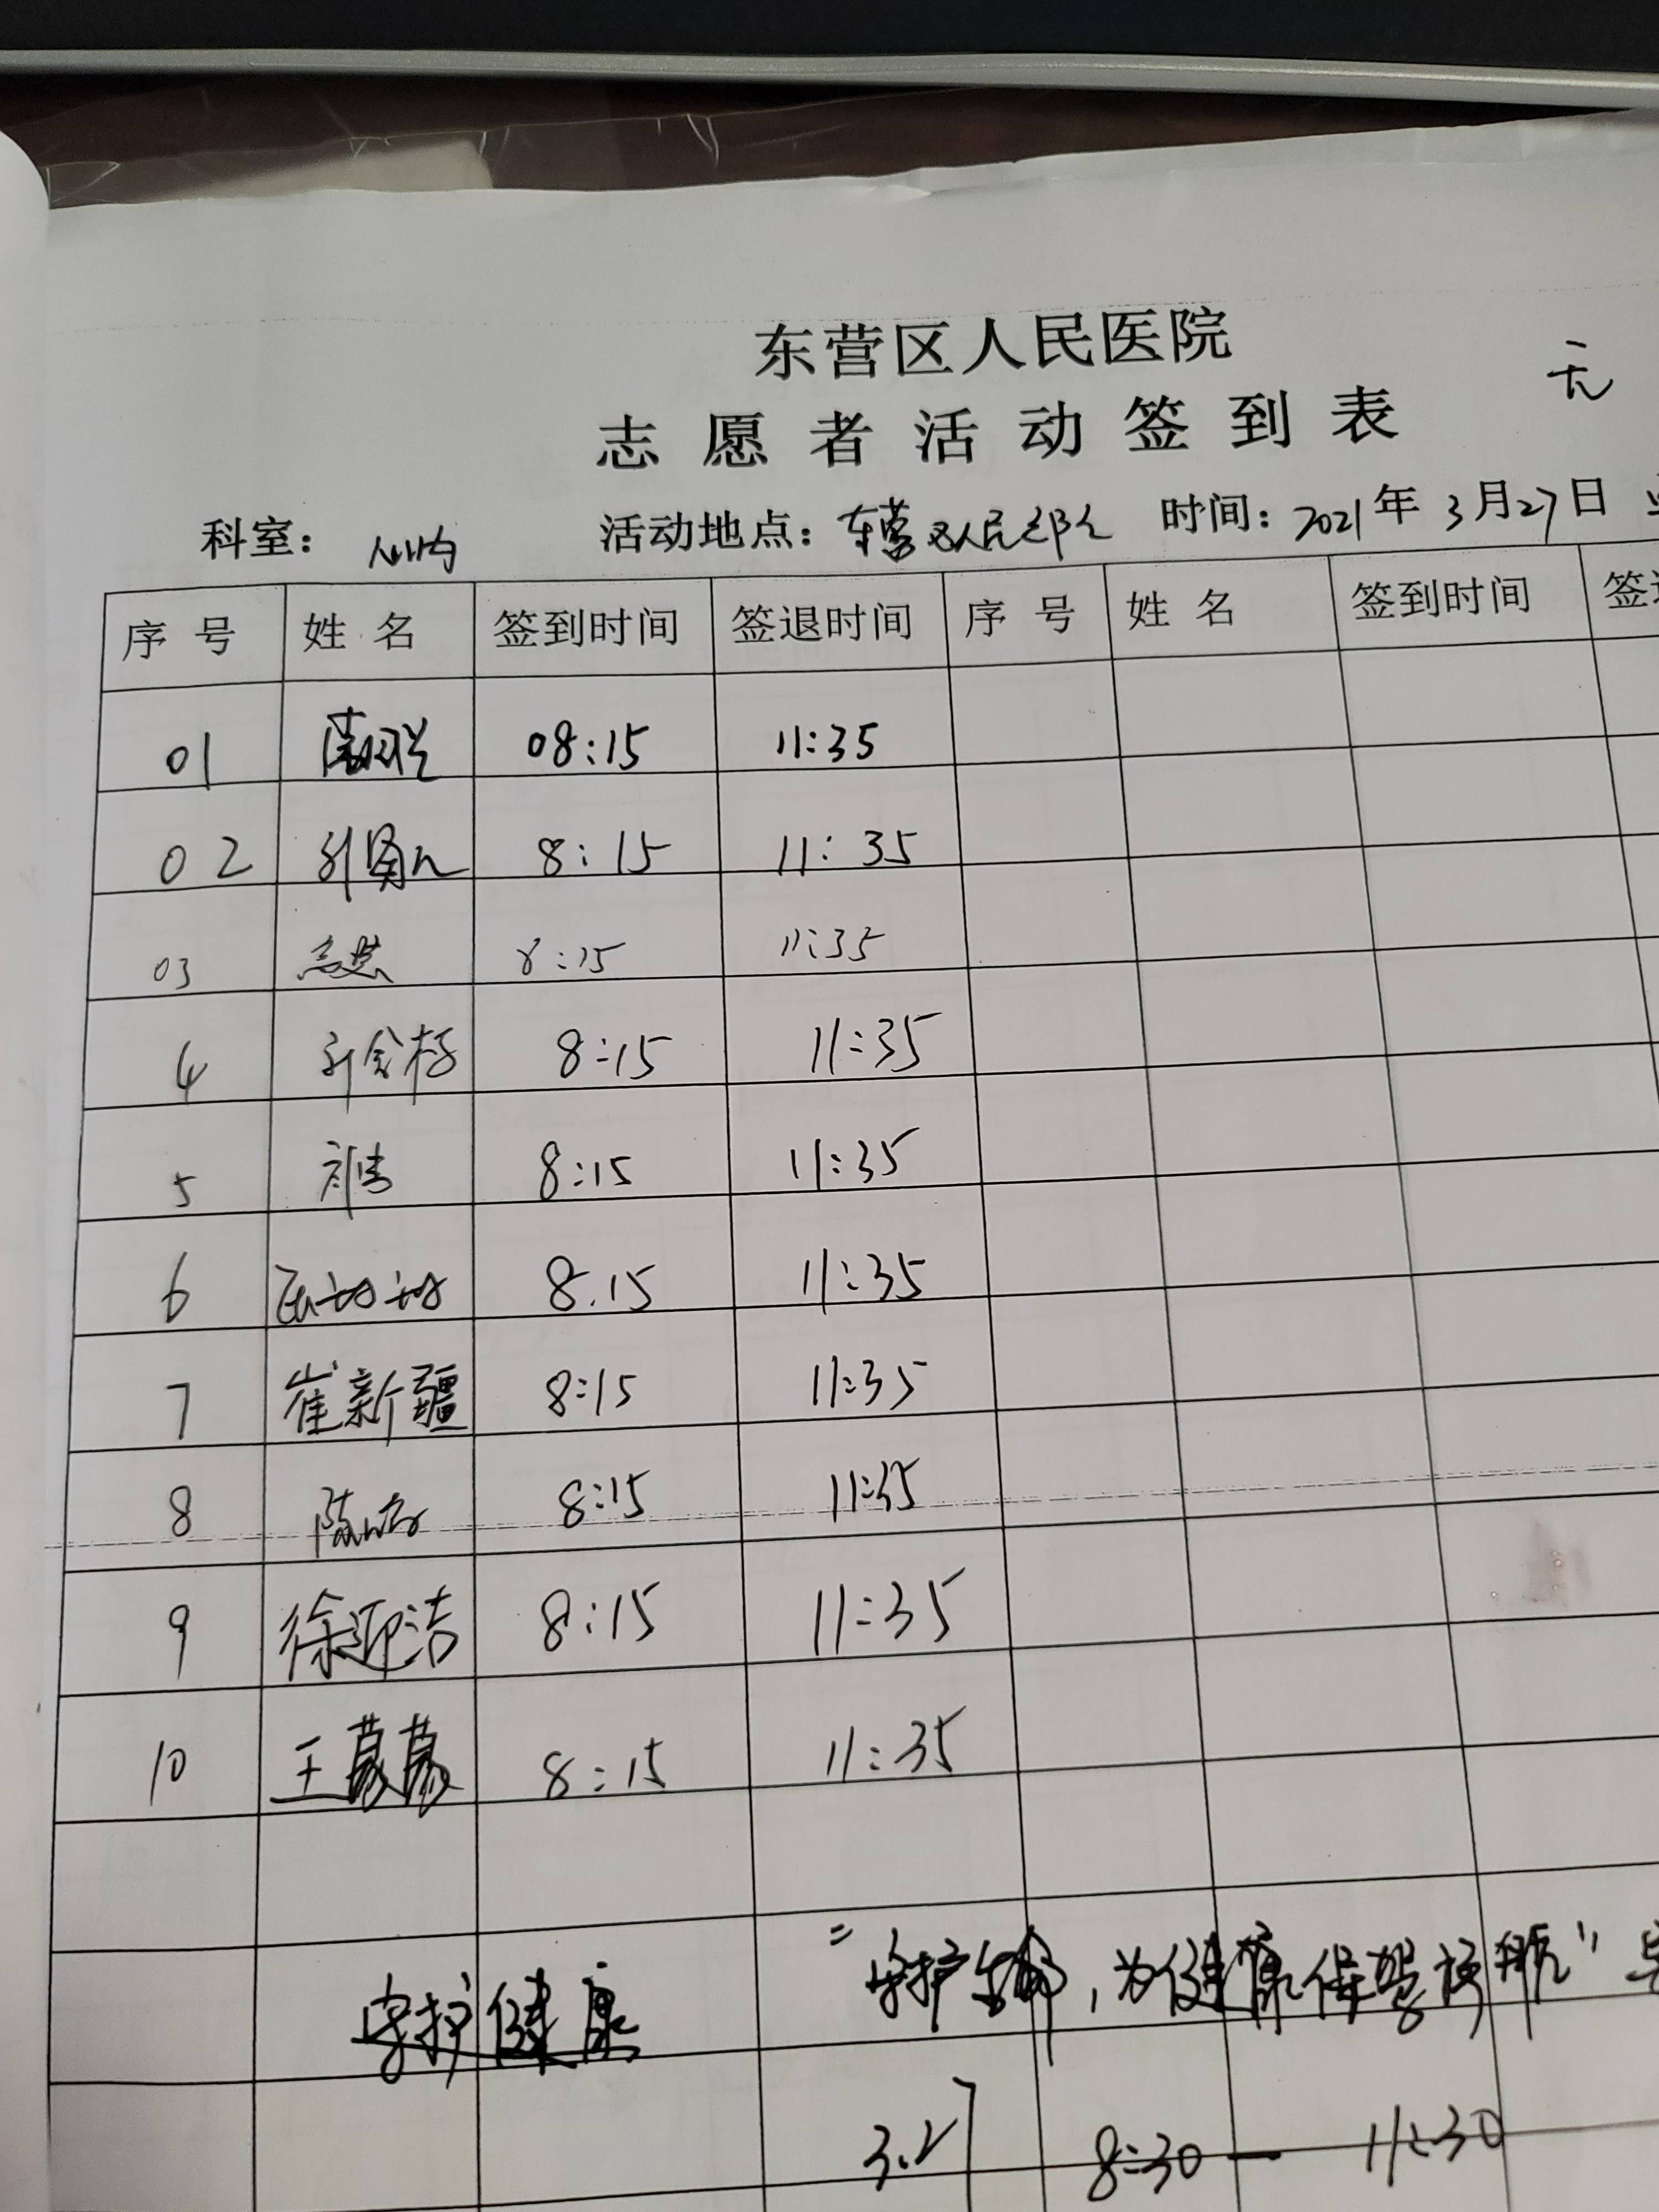 东营区人民医院
无
志愿者活动签到表
科室： 心内 活动地点：东营区人民医院 时间：2021年3月27日
序号 姓名 签到时间 签退时间 序号 姓名 签到时间 签
01 08:15 11:35
02 8:15 11:35
03 8:15 11:35
4 8:15 11:35
5 8:15 11:35
6 8.15 11:35
7 崔新疆 8:15 11:35
8 8:15 11:35
9 徐迎洁 8:15 11:35
10 王蒙蒙 8:15 11:35
"守护 ,为健康保驾护航"
守护健康
3.27 8:30 — 11:30